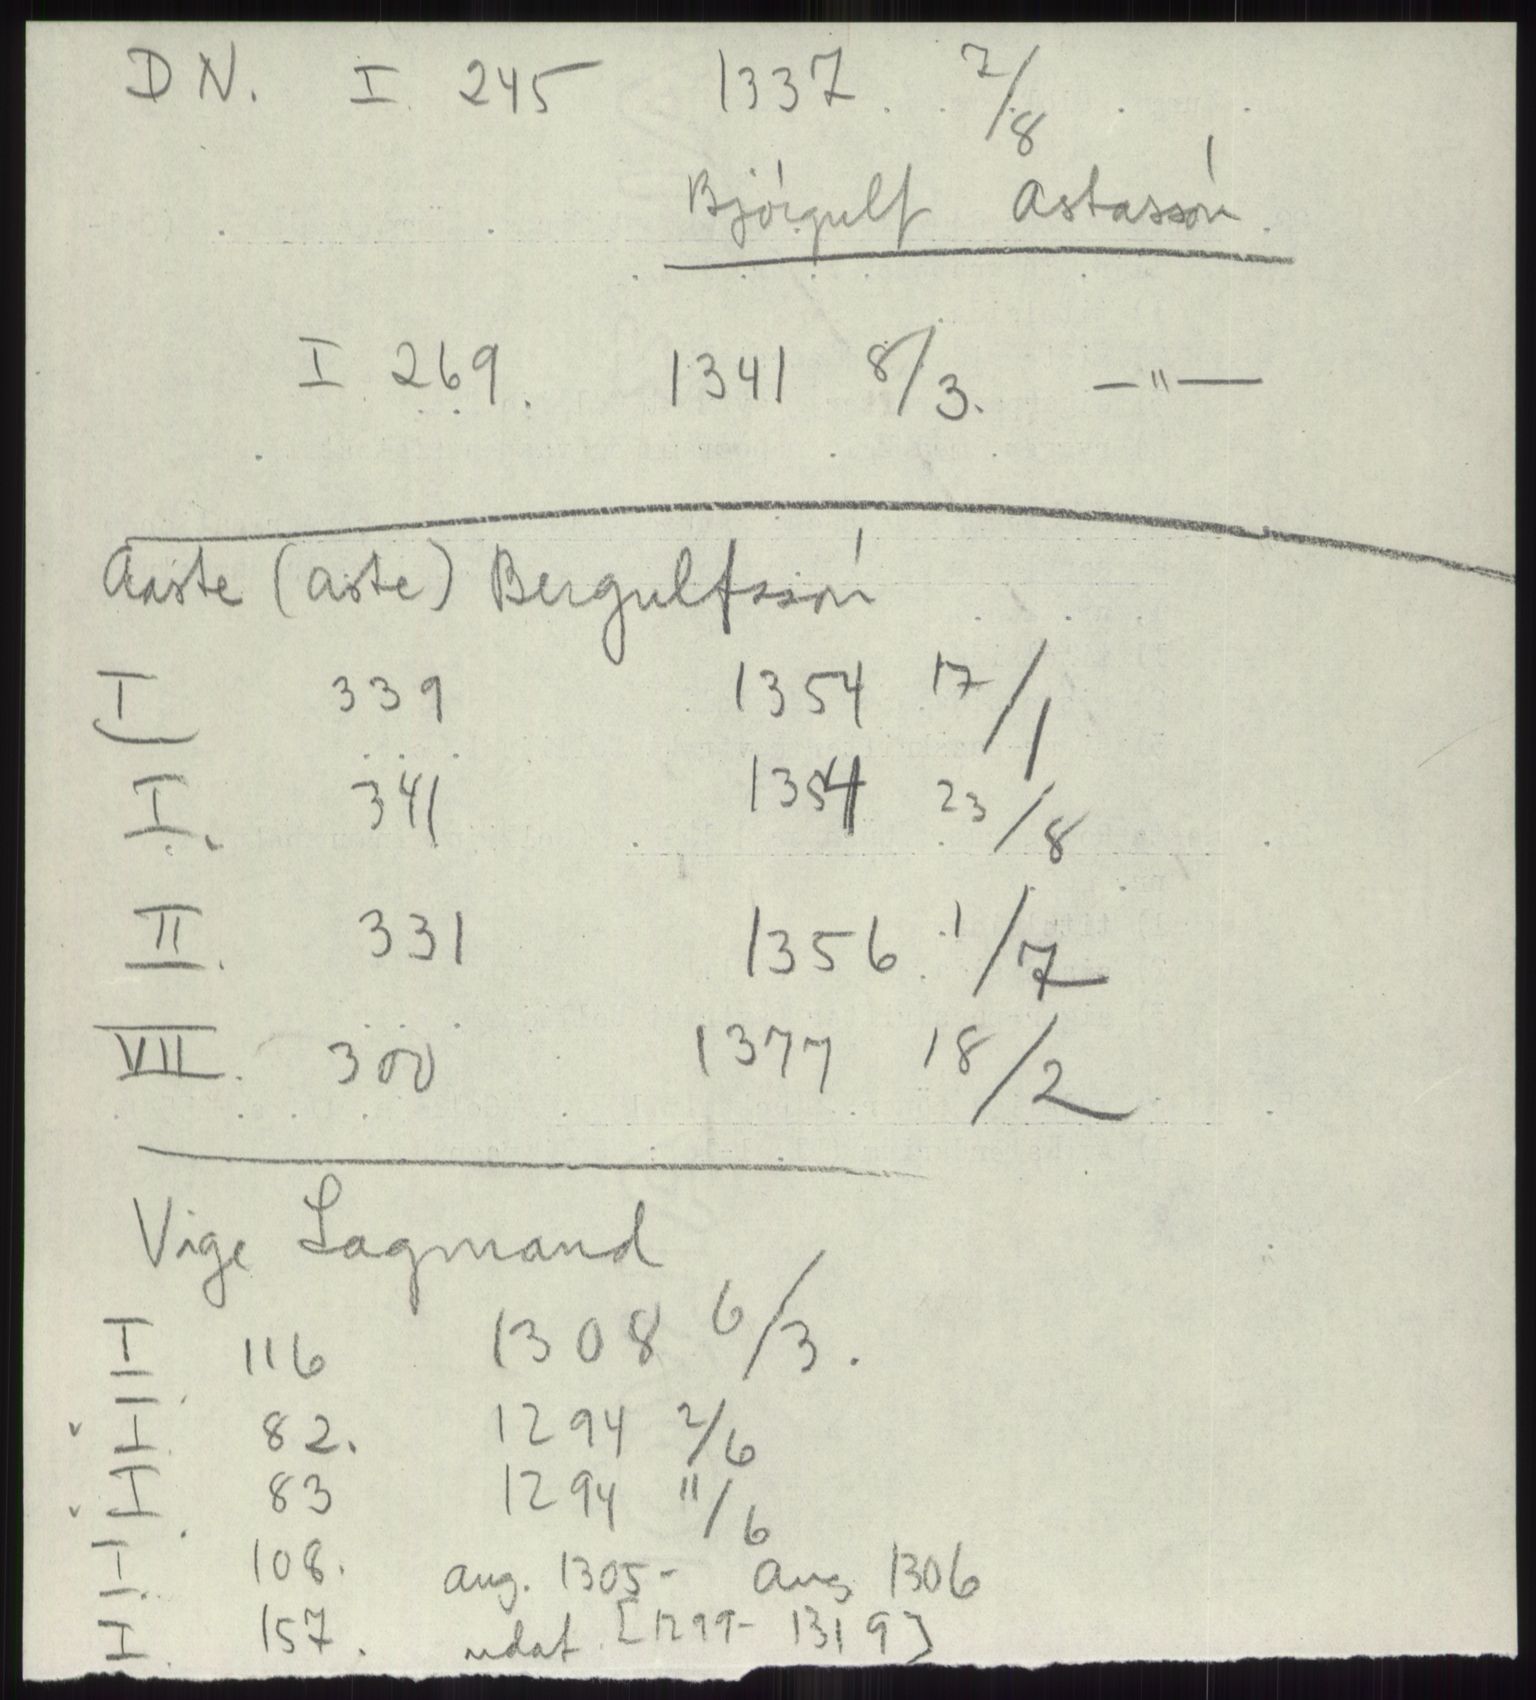 DN. I 245 1337. 7/8
Bjórgulf Astassón.
I 269. 1341 8/3. —"—
Aaste (Aste) Bergulfssón
I 339 1354 17/1
I. 341 1354 23/8
II. 331 1356 1/7
VII. 300 1377 18/2
Vige Lagmand
I 116 1308 6/3.
v I 82. 1294 2/6
v I 83 1294 11/6
I. 108. aug. 1305- aug 1306
I. 157. udat. [1299- 1319]